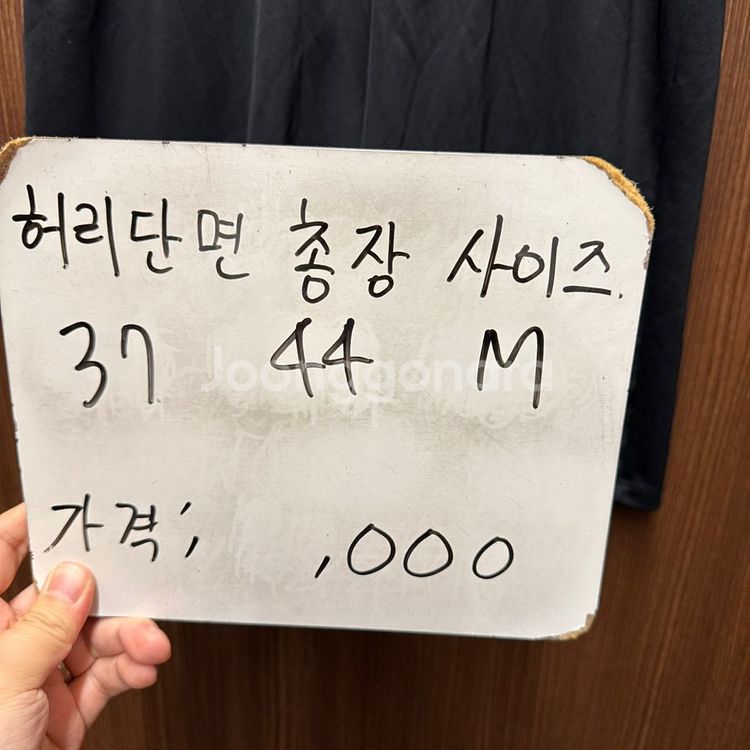 허리단면 총장 사이즈.
37 44 M
Joonggonara
가격; ,000